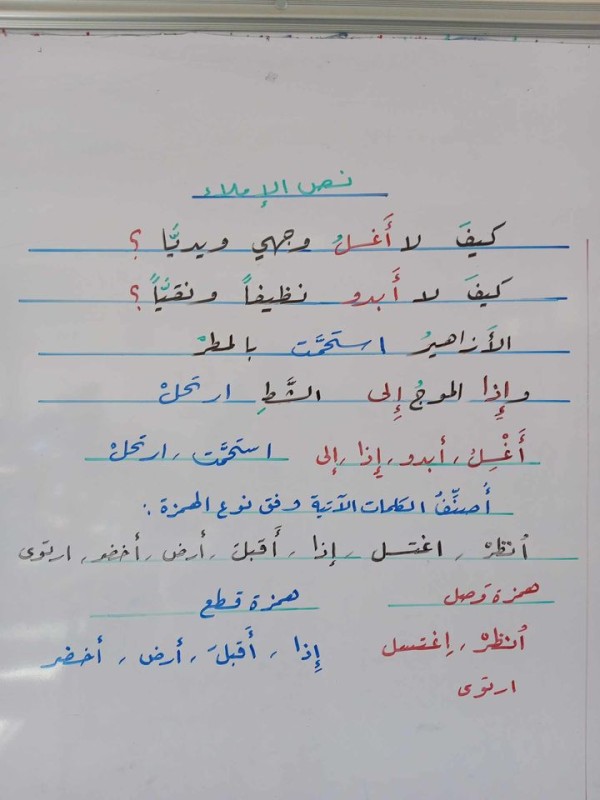 نص الإملاء
كيفَ لا أَغسلُ وجهي ويديَّا ؟
كيفَ لا أَبدو نظيفاً ونقيَّاً ؟
الأَزاهيرُ استحمَّت بالمطرْ
وإِذا الموجُ إِلى الشَّطِ ارتحلْ
أَغْسِلُ، أبدو، إِذا، إلى استحمَّت، ارتحلْ
أُصنِّفُ الكلمات الآتية وفق نوع الهمزة :
اُنظرْ، اغتسل، إذا، أَقبلَ، أرض، أخضر، ارتوى
همزة وصل همزة قطع
اُنظرْ، اِغتسل إِذا، أَقبلَ، أرض، أخضر
ارتوى